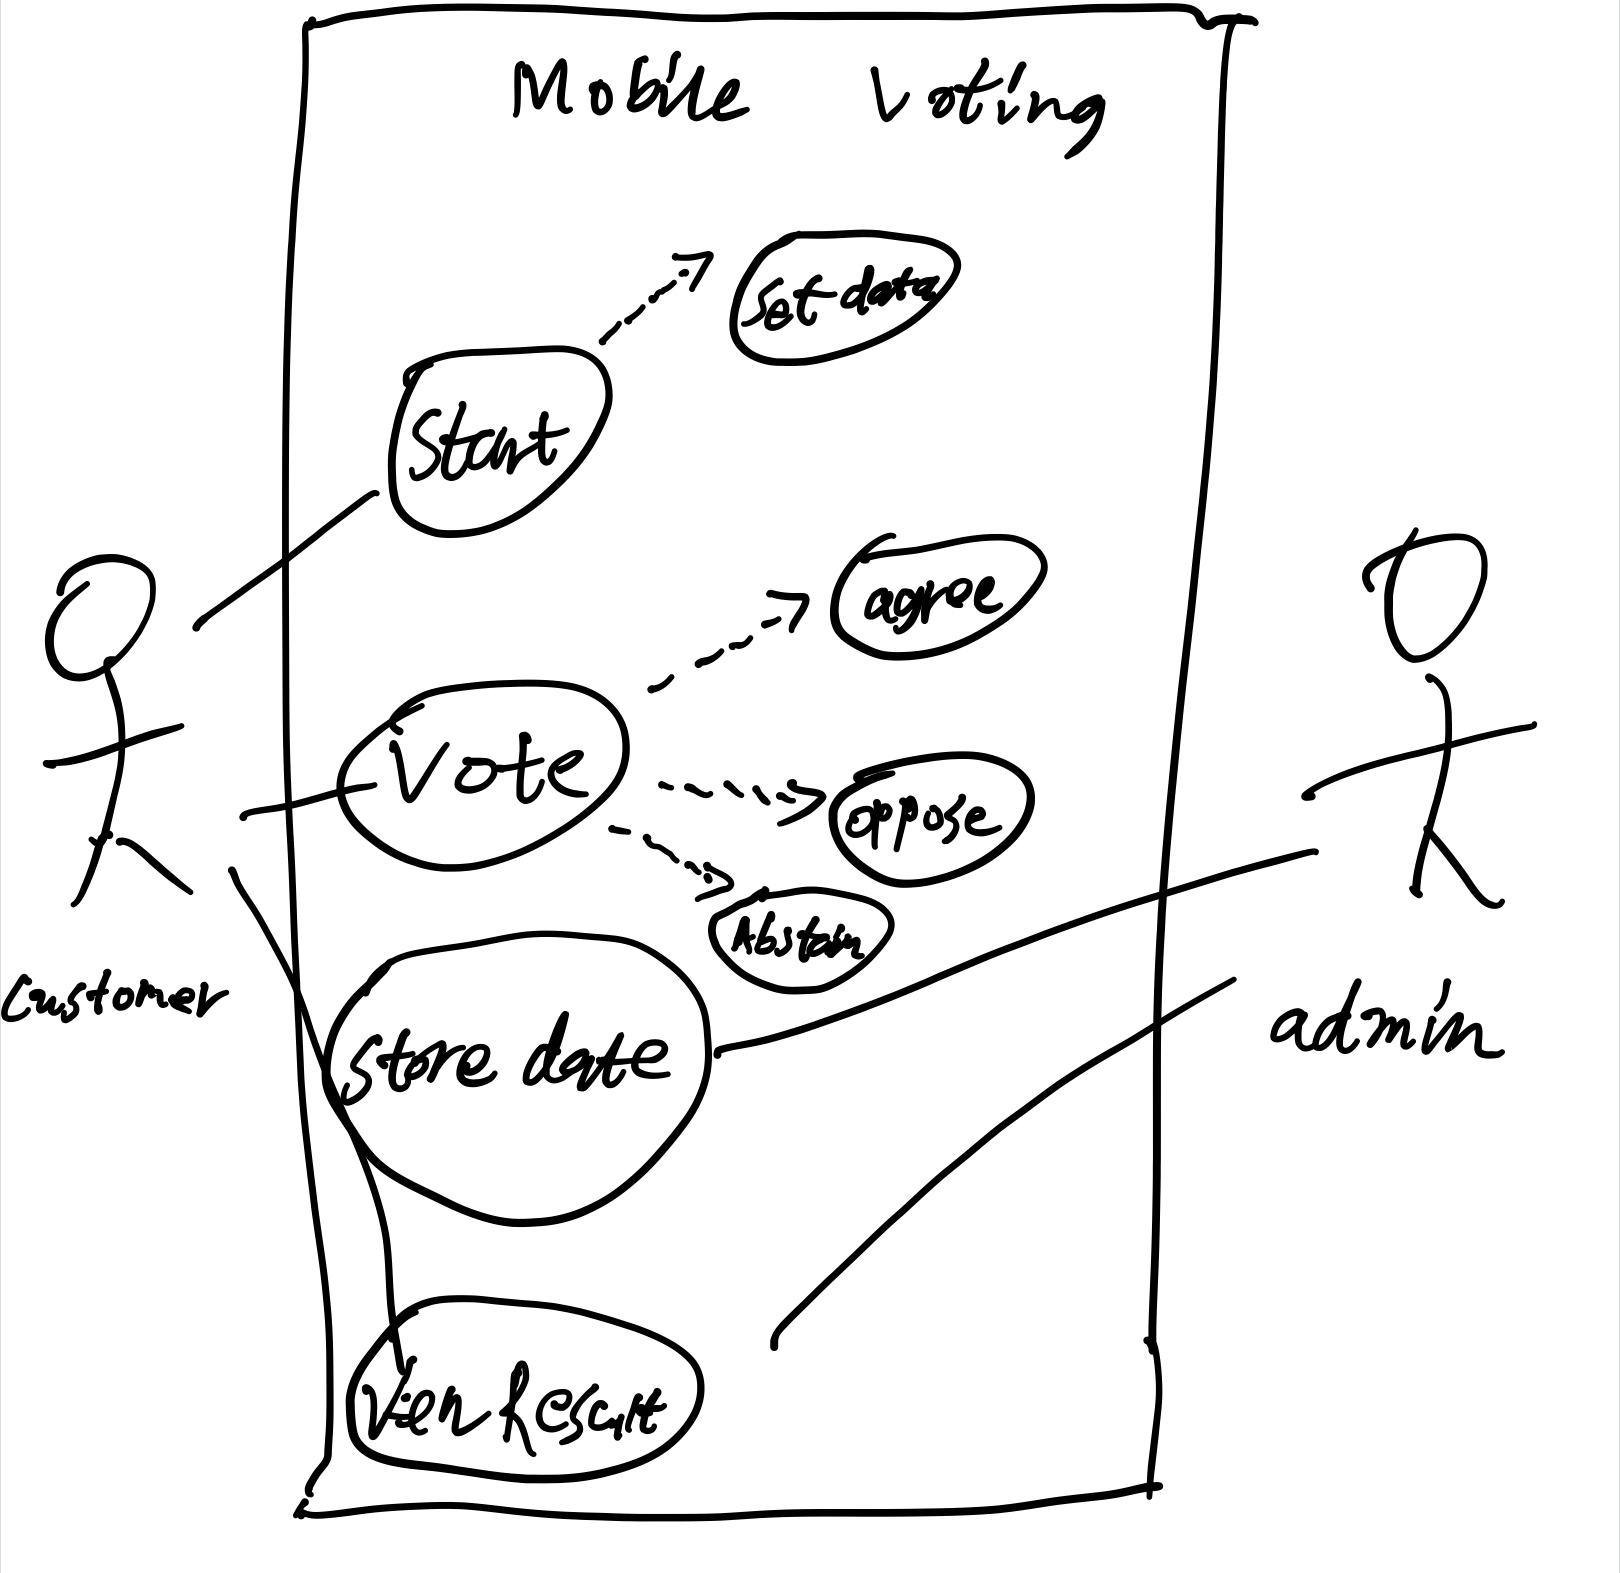 Mobile Voting
Set data
Start
agree
Vote
oppose
Abstain
customer
admin
store date
View Result